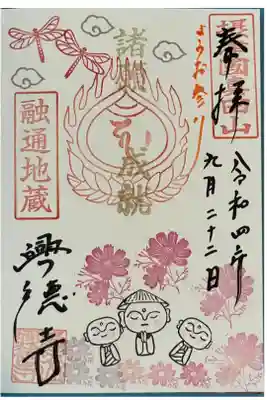 奉拝
ようお参り
令和四年
九月二十二日
諸願成就
融通地蔵
興徳寺